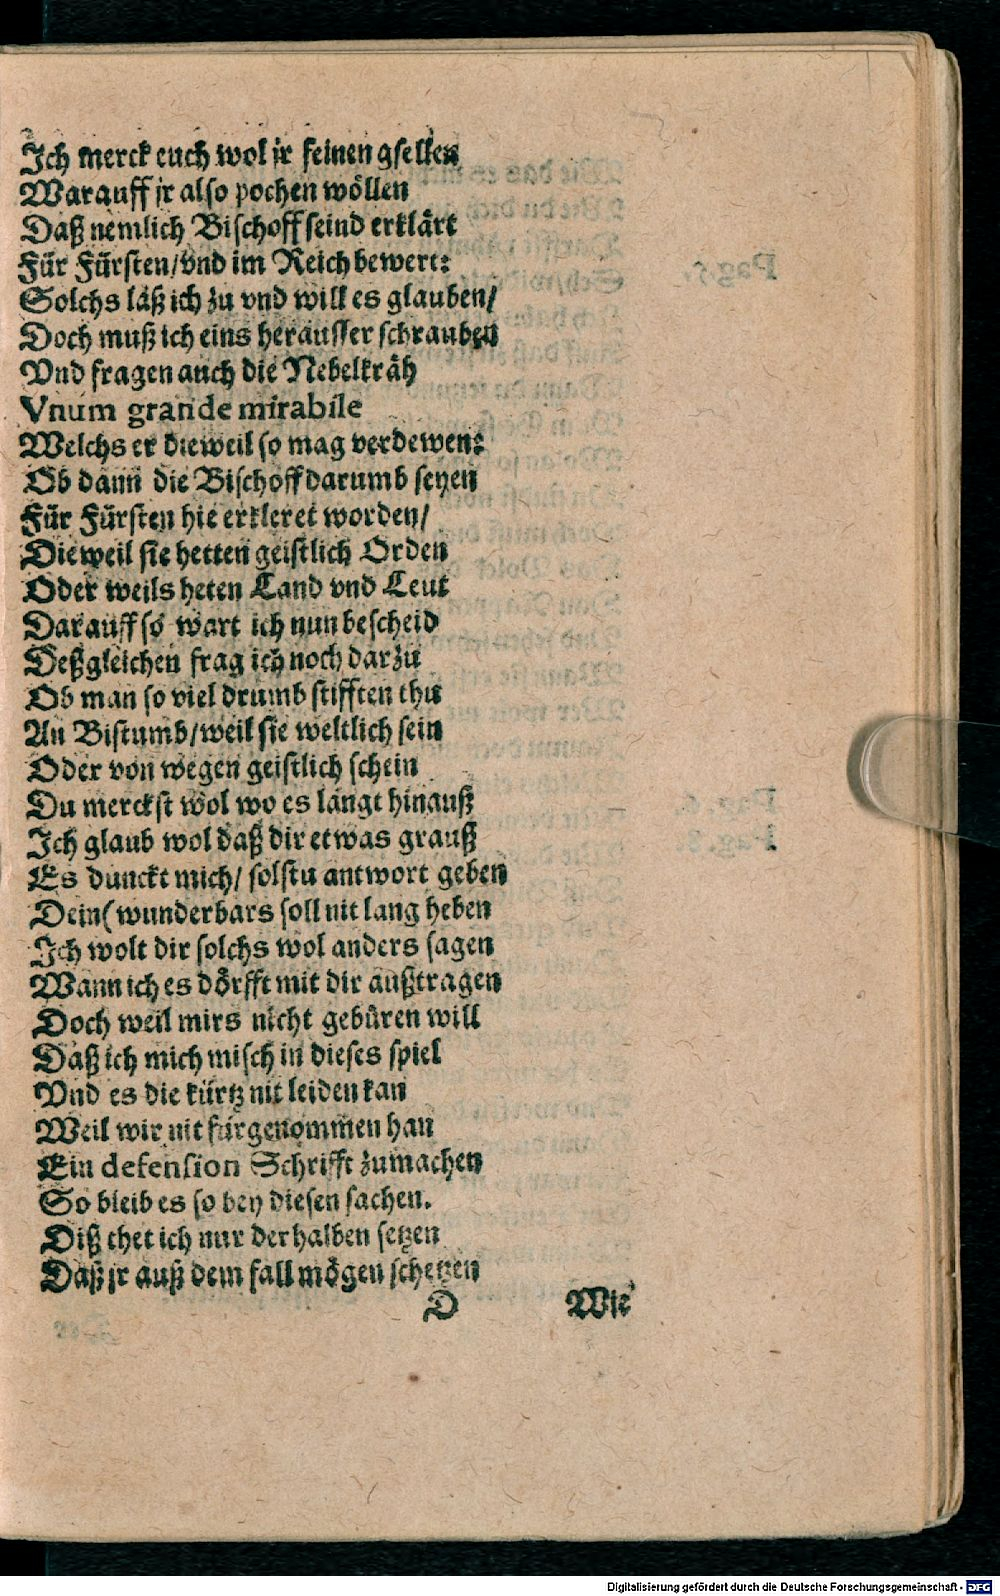 Ich merck euch wol jr feinen gsellen
Warauff jr also pochen wöllen
Daß nemlich Bischoff seind erklärt
Für Fürsten/vnd im Reich bewert:
Solchs laß ich zu vnd will es glauben/
Doch muß ich eins herausser schrauben
Vnd fragen auch die Nebelkräh
Vnum grande mirabile
Welchs er dieweil so mag verdewen:
Ob dann die Bischoff darumb seyen
Für Fürsten hie erkleret worden/
Dieweil sie hetten geistlich Orden
Oder weils heten Land vnd Leut
Darauff so wart ich nun bescheid
Deßgleichen frag ich noch darzu
Ob man so viel drumb stifften thu
An Bistumb/weil sie weltlich sein
Oder von wegen geistlich schein
Du merckst wol wo es langt hinauß
Ich glaub wol daß dir etwas grauß
Es dunckt mich/ solstu antwort geben
Dein (wunderbars soll nit lang heben
Ich wolt dir solchs wol anders sagen
Wann ich es dörfft mit dir außtragen
Doch weil mirs nicht gebüren will
Daß ich mich misch in dieses spiel
Vnd es die kürtz nit leiden kan
Weil wir nit fürgenommen han
Ein defension Schrifft zumachen
So bleib es so bey diesen sachen.
Diß thet ich nur derhalben setzen
Daß jr auß dem fall mögen schetzen
D Wie
Digitalisierung gefördert durch die Deutsche Forschungsgemeinschaft - DFG